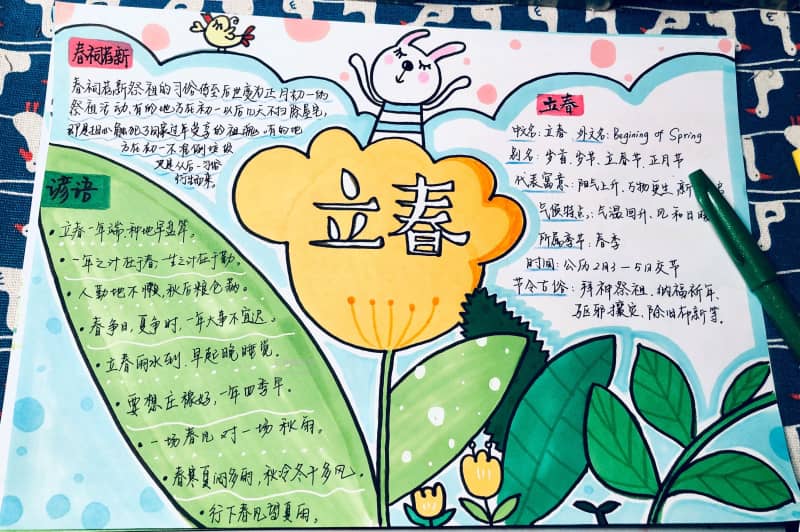 春祠荐新
春祠荐新祭祖的习俗传至后世变为正月初一的
祭祖活动,有的地方在初一以后几天不扫除屋宅,
过年
有的地
方在初一不准倒垃圾
谚语
立春一年端,种地早盘算。
一年之计在于春,一生之计在于勤。
人勤地不懒,秋后粮仓满。
春争日,夏争时,一年大事不宜迟。
立春雨水到,早起晚睡觉。
要想庄稼好,一年四季早。
一场春风对一场秋雨。
春寒夏闷多雨,秋冷冬干多风。
行下春风望夏雨。
立春
立春
中文名:立春 外文名:Begining of Spring
别名:岁首、岁节、立春节、正月节
代表寓意:阳气上升、万物更生、新
气候特点:气温回升、风和日
所属季节:春季
时间:公历2月3-5日交节
节令古俗:拜神祭祖、纳福祈年、
驱邪攘灾、除旧布新等。